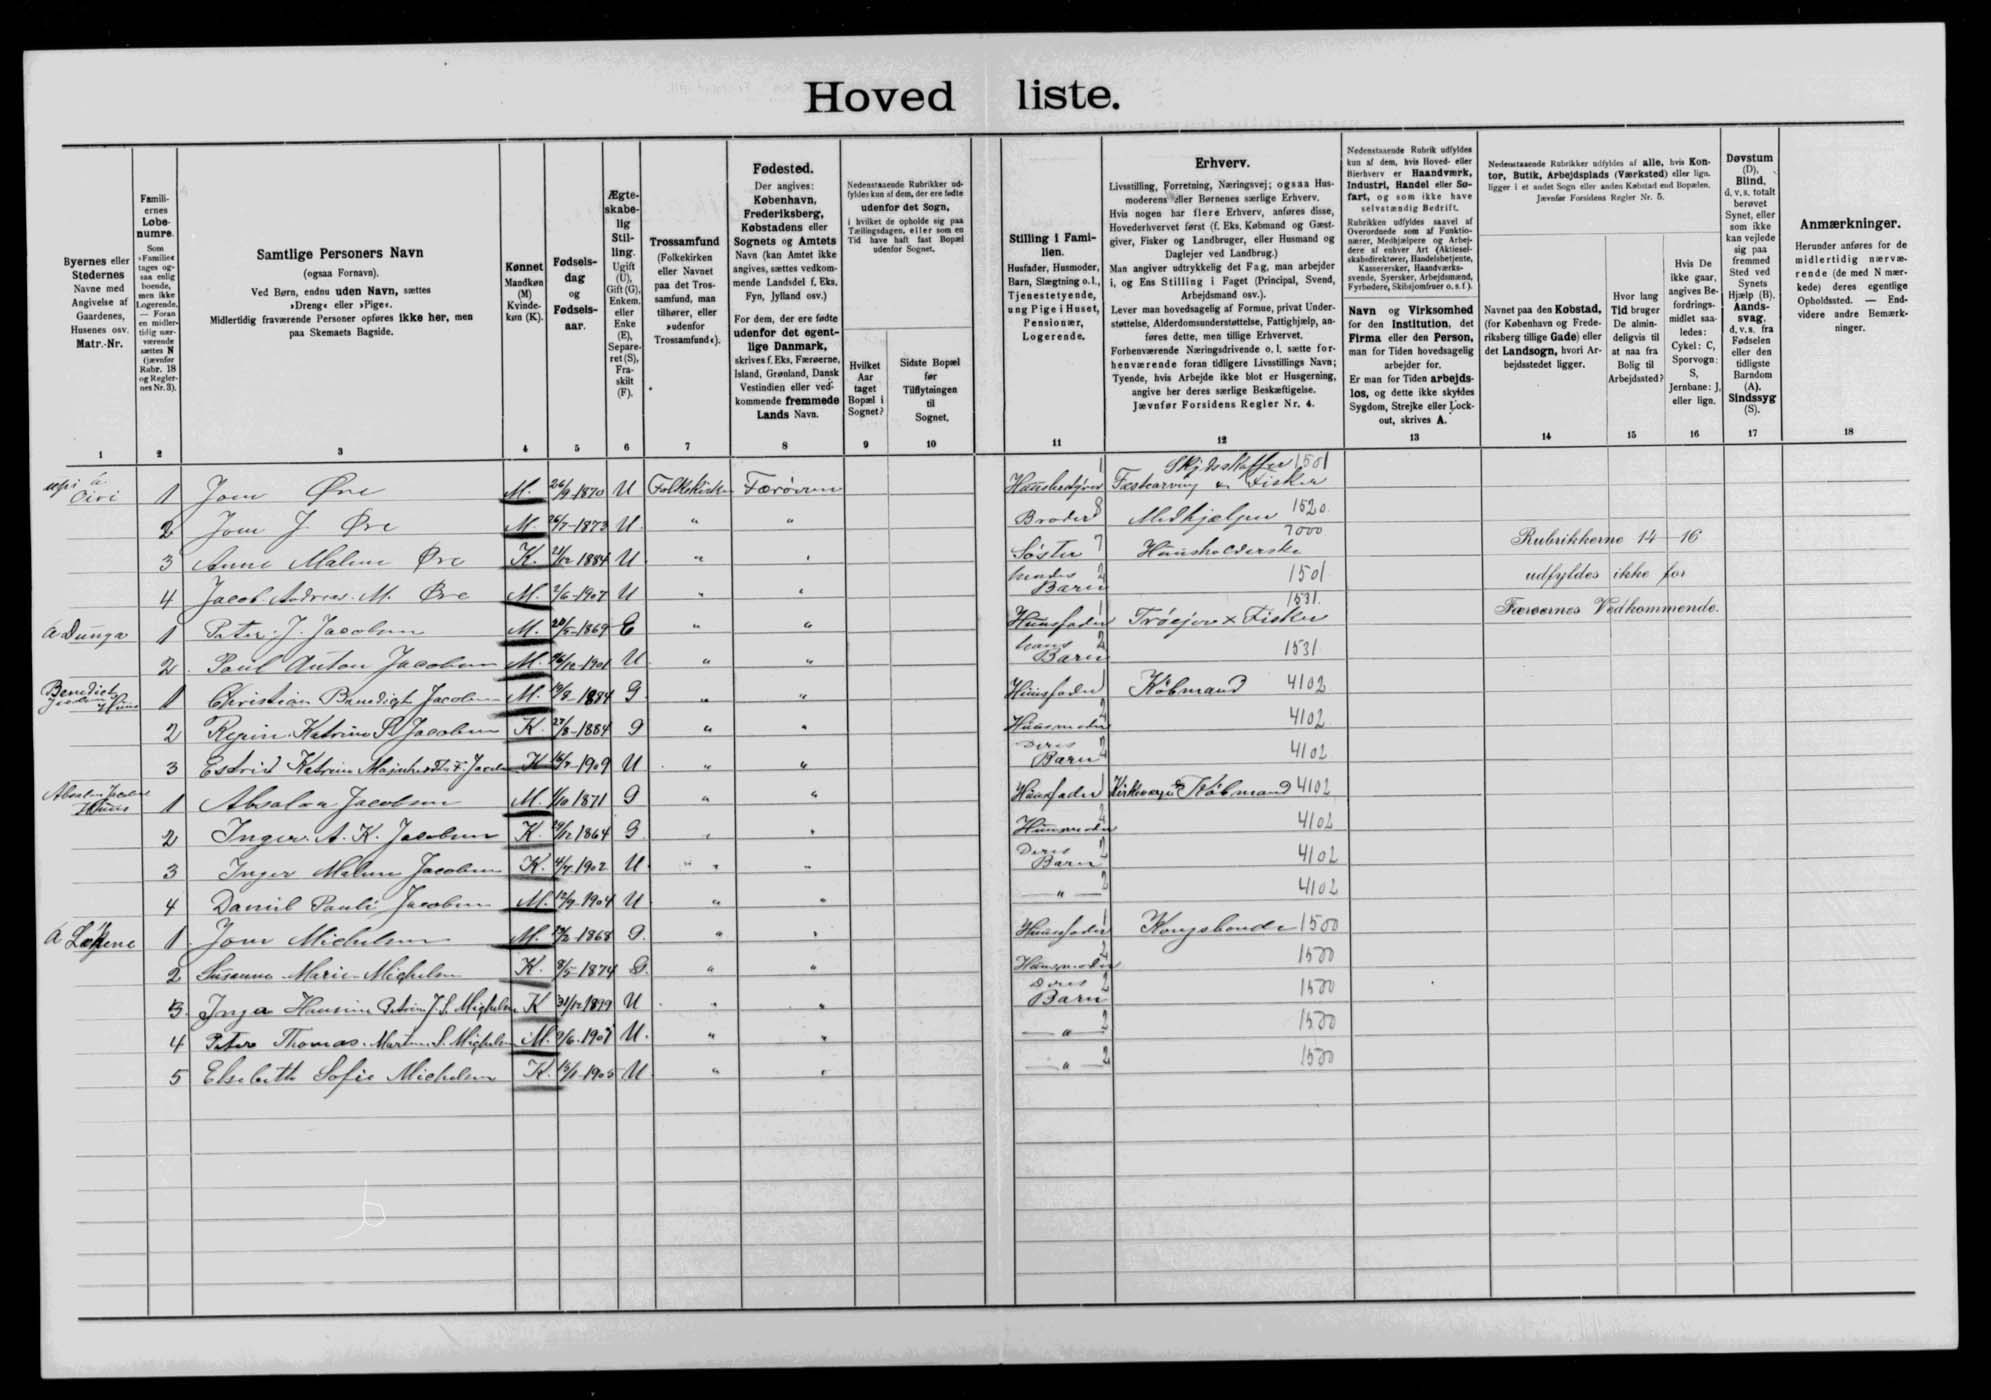 Hoved liste.
Byernes eller Stedernes Navne med Angivelse af Gaardenes, Husenes osv. Matr.-Nr.
Familiernes Løbenumre. Som »Familie« tages ogsaa enlig boende, men ikke Logerende. — Foran en midlertidig nærværende sættes N (jævnfør Rubr. 18 og Reglernes Nr. 3).
Samtlige Personers Navn
(ogsaa Fornavn).
Ved Børn, endnu uden Navn, sættes
»Dreng« eller »Pige«.
Midlertidig fraværende Personer opføres ikke her, men
paa Skemaets Bagside.
Kønnet Mandkøn (M) Kvindekøn (K).
Fødselsdag og Fødselsaar.
Ægteskabelig Stilling. Ugift (U), Gift (G), Enkem. eller Enke (E), Separeret (S), Fraskilt (F).
Trossamfund (Folkekirken eller Navnet paa det Trossamfund, man tilhører, eller »udenfor Trossamfund«).
Fødested.
Der angives: København, Frederiksberg, Købstadens eller Sognets og Amtets Navn (kan Amtet ikke angives, sættes vedkommende Landsdel f. Eks. Fyn, Jylland osv.)
For dem, der ere fødte udenfor det egentlige Danmark, skrives f. Eks. Færøerne, Island, Grønland, Dansk Vestindien eller vedkommende fremmede Lands Navn.
Nedenstaaende Rubrikker udfyldes kun af dem, der ere fødte udenfor det Sogn, i hvilket de opholde sig paa Tællingsdagen, eller som en Tid have haft fast Bopæl udenfor Sognet.
Hvilket Aar taget Bopæl i Sognet?
Sidste Bopæl før Tilflytningen til Sognet.
Stilling i Familien.
Husfader, Husmoder, Barn, Slægtning o. l., Tjenestetyende, ung Pige i Huset, Pensionær, Logerende.
Erhverv.
Livsstilling, Forretning, Næringsvej; ogsaa Husmoderens eller Børnenes særlige Erhverv.
Hvis nogen har flere Erhverv, anføres disse, Hovederhvervet først (f. Eks. Købmand og Gæstgiver, Fisker og Landbruger, eller Husmand og Daglejer ved Landbrug.)
Man angiver udtrykkelig det Fag, man arbejder i, og Ens Stilling i Faget (Principal, Svend, Arbejdsmand osv.).
Lever man hovedsagelig af Formue, privat Understøttelse, Alderdomsunderstøttelse, Fattighjælp, anføres dette, men tillige Erhvervet.
Forhenværende Næringsdrivende o. l. sætte forhenværende foran tidligere Livsstillings Navn; Tyende, hvis Arbejde ikke blot er Husgerning, angive her deres særlige Beskæftigelse.
Jævnfør Forsidens Regler Nr. 4.
Nedenstaaende Rubrik udfyldes kun af dem, hvis Hoved- eller Bierhverv er Haandværk, Industri, Handel eller Søfart, og som ikke have selvstændig Bedrift.
Rubrikken udfyldes saavel af Overordnede som af Funktionærer, Medhjælpere og Arbejdere af enhver Art (Aktieselskabsdirektører, Handelsbetjente, Kasserersker, Haandværkssvende, Syersker, Arbejdsmænd, Fyrbødere, Skibsjomfruer o. s. f.).
Navn og Virksomhed for den Institution, det Firma eller den Person, man for Tiden hovedsagelig arbejder for.
Er man for Tiden arbejdsløs, og dette ikke skyldes Sygdom, Strejke eller Lockout, skrives A.
Nedenstaaende Rubrikker udfyldes af alle, hvis Kontor, Butik, Arbejdsplads (Værksted) eller lign. ligger i et andet Sogn eller anden Købstad end Bopælen.
Jævnfør Forsidens Regler Nr. 5.
Navnet paa den Købstad, (for København og Frederiksberg tillige Gade) eller det Landsogn, hvori Arbejdsstedet ligger.
Hvor lang Tid bruger De almindeligvis til at naa fra Bolig til Arbejdssted?
Hvis De ikke gaar, angives Befordringsmidlet saaledes: Cykel: C, Sporvogn: S, Jernbane: J, eller lign.
Døvstum (D), Blind, d. v. s. totalt berøvet Synet, eller som ikke kan vejlede sig paa fremmed Sted ved Synets Hjælp (B). Aandssvag, d. v. s. fra Fødselen eller den tidligste Barndom (A). Sindssyg (S).
Anmærkninger.
Herunder anføres for de midlertidig nærværende (de med N mærkede) deres egentlige Opholdssted. — Endvidere andre Bemærkninger.
1 2 3 4 5 6 7 8 9 10 11 12 13 14 15 16 17 18
1 Jom Øre M. 26/9-1870 U Folkekirken Færöerne 1 1501
2 Jom J. Øre M. 26/7-1873 U. " " Broder 8 Medhjælper 1520.
3 Anne Malene Øre K. 21/12 1884 U. " " Söster 7 Huusholderske 7000
4 Jacob Andreas M. Øre M. 2/6-1907 U " " hendes Barn 2 1501
á Dunga 1 Peter J. Jacobsen M. 20/5-1869 E " " Huusfader 1 Fisker 1531.
2. Poul Anton Jacobsen M. 26/12-1901 U. " " hans Barn 2 1531
1 Christian Benedigt Jacobsen M. 19/8-1884 G. " " Huusfader 1 Köbmand 4102
2 Katrine S. Jacobsen K. 27/8-1884 G " " Huusmoder 2 4102
3 Estrid Katrine Jacobsen K 1909 U. " " Deres Barn 2 4102
1 Absalon Jacobsen M. 1/10 1871 G " " Huusfader 1 Köbmand 4102
2 Inger A. K. Jacobsen K. 29/12 1864 G. " " Huusmoder 2 4102
3 Inger Malene Jacobsen K. 4/7-1902 U. " " Deres Barn 2 4102
4 Daniel Pauli Jacobsen M. 12/9-1904 U. " " — " — 2 4102
1. Jom Michelsen M. 1868 G. " " Huusfader 1 Kongsbonde 1500
2 Susanna Marie Michelsen K. 8/5-1874 G. " " Huusmoder 2 1500
3. Inga Hansine J. S. Michelsen K 31/12 1899 U " " Deres Barn 2 1500
4 Peter Thomas S. Michelsen M. U. " " — " — 2 1500
5 Elsebeth Sofie Michelsen K. 1905 U. " " — " — 2 1500
Rubrikkerne 14-16
udfyldes ikke for
Færøernes Vedkommende.